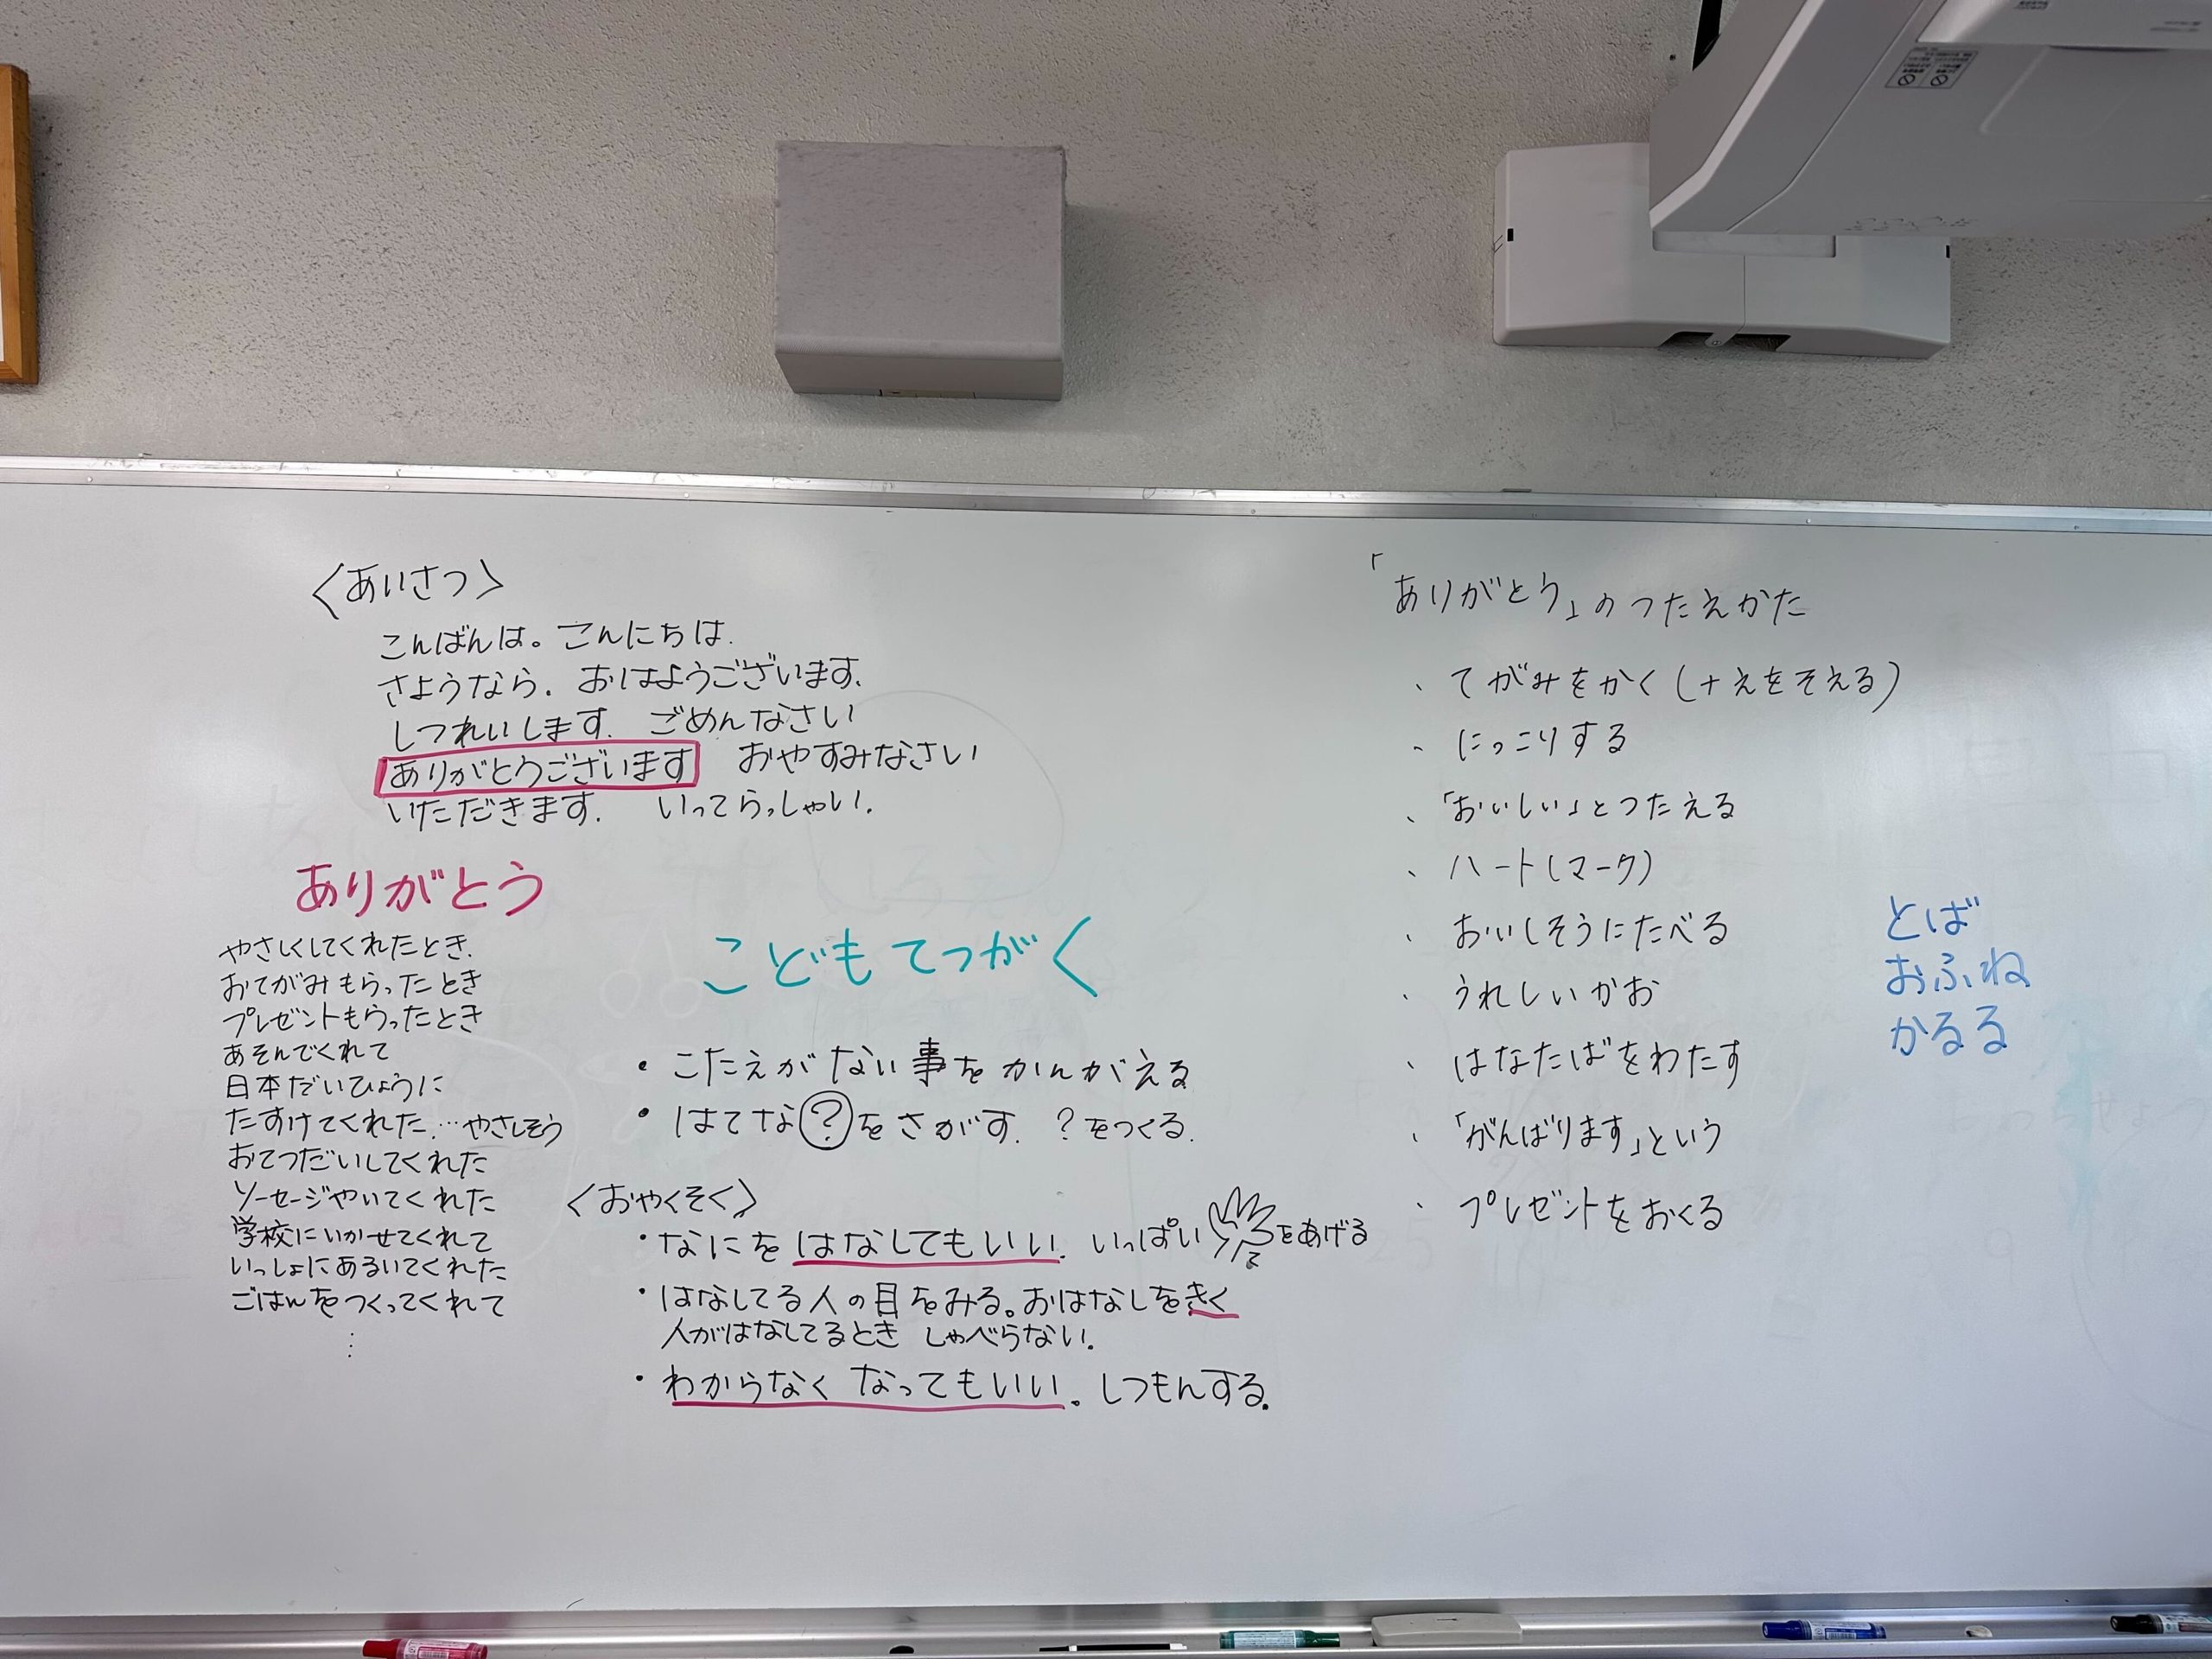 〈あいさつ〉
こんばんは。こんにちは.
さようなら. おはようございます.
しつれいします. ごめんなさい
ありがとうございます おやすみなさい
いただきます. いってらっしゃい.
ありがとう
やさしくしてくれたとき.
おてがみもらったとき
プレゼントもらったとき
あそんでくれて
日本だいひょうに
たすけてくれた.…やさしそう
おてつだいしてくれた
ソーセージやいてくれた
学校にいかせてくれて
いっしょにあるいてくれた
ごはんをつくってくれて
⋮
こどもてつがく
・こたえがない事をかんがえる
・はてな?をさがす. ?をつくる.
〈おやくそく〉
・なにをはなしてもいい. いっぱい てをあげる
・はなしてる人の目をみる。おはなしをきく
人がはなしてるとき しゃべらない.
・わからなく なってもいい。しつもんする.
「ありがとう」のつたえかた
、てがみをかく(+えをそえる)
、にっこりする
、「おいしい」とつたえる
、ハート(マーク)
、おいしそうにたべる
、うれしいかお
、はなたばをわたす
、「がんばります」という
、プレゼントをおくる
とば
おふね
かるる